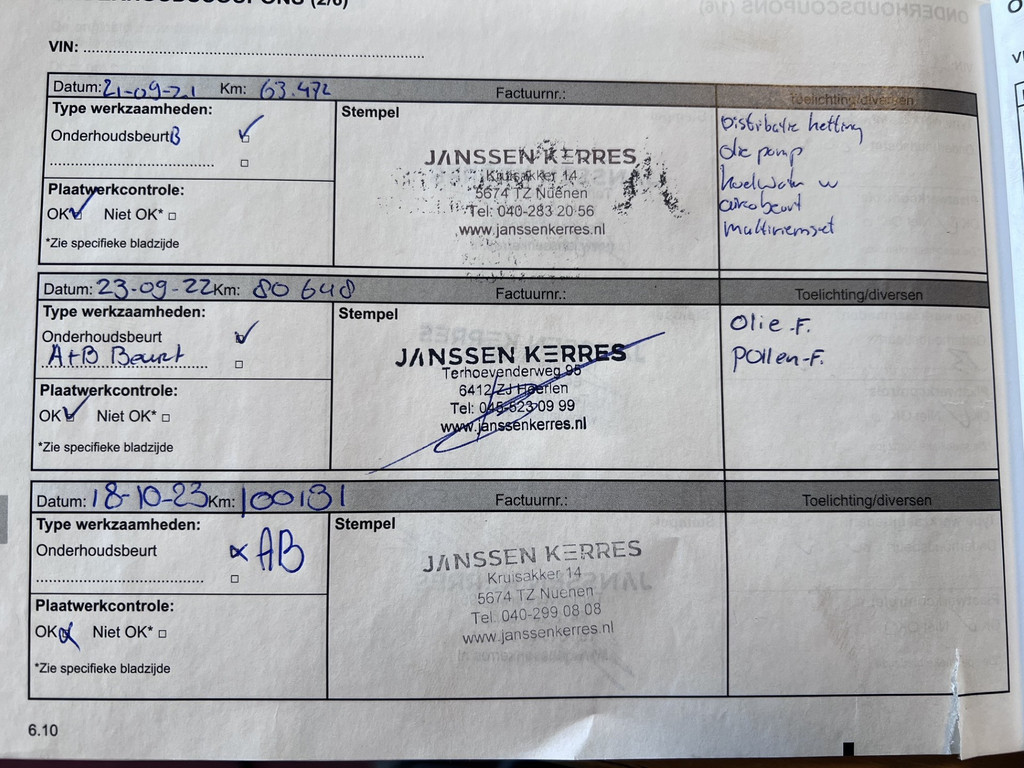 ONDERHOUDSCOUPONS (2/6)
VIN:
Datum: 21-09-21 Km: 63.472 Factuurnr.: Toelichting/diversen
Type werkzaamheden:
Onderhoudsbeurt B
Plaatwerkcontrole:
OK Niet OK*
*Zie specifieke bladzijde
Stempel
JANSSEN KERRES
Kruisakker 14
5674 TZ Nuenen
Tel: 040-283 20 56
www.janssenkerres.nl
Distributie ketting
Olie pomp
koelwater
airco beurt
multiriemset
Datum: 23-09-22 Km: 80 648 Factuurnr.: Toelichting/diversen
Type werkzaamheden:
Onderhoudsbeurt
A+B Beurt
Plaatwerkcontrole:
OK Niet OK*
*Zie specifieke bladzijde
Stempel
JANSSEN KERRES
Terhoevenderweg 95
6412 ZJ Heerlen
Tel: 045-523 09 99
www.janssenkerres.nl
Olie-F.
Pollen-F.
Datum: 18-10-23 Km: 100131 Factuurnr.: Toelichting/diversen
Type werkzaamheden:
Onderhoudsbeurt AB
Plaatwerkcontrole:
OK Niet OK*
*Zie specifieke bladzijde
Stempel
JANSSEN KERRES
Kruisakker 14
5674 TZ Nuenen
Tel: 040-299 08 08
www.janssenkerres.nl
6.10